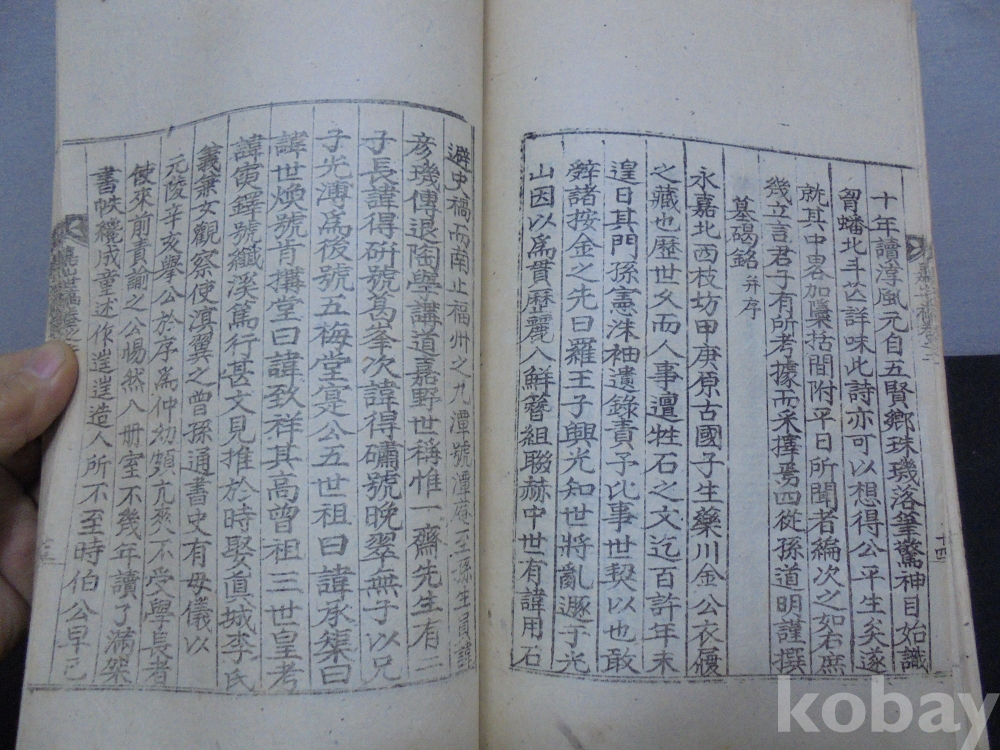 十年讀淳風元自五賢鄕珠璣落筆驚神目始識
胷蟠北斗芒詳味此詩亦可以想得公平生矣遂
就其中畧加檃括間附平日所聞者編次之如右庶
幾立言君子有所考據而采擇焉四從孫道明謹撰
墓碣銘 幷序
永嘉北西枝坊甲庚原古國子生藥川金公衣履
之藏也歷世久而人事邅牲石之文迄百許年未
遑日其門孫憲洙袖遺錄責予比事世契以也敢
辤諸按金之先曰羅王子興光知世將亂遯于光
山因以爲貫歷麗入鮮簪組聯赫中世有諱用石
避史禍而南止福州之九潭號潭庵至孫生員諱
彦璣傳退陶學講道嘉野世稱惟一齋先生有二
子長諱得硏號葛峯次諱得䃤號晩翠無子以兄
子光溥爲後號五梅堂寔公五世祖曰諱承
諱世煥號肯搆堂曰諱致祥其高曾祖三世皇考
諱寅鐸號纖溪篤行甚文見推於時娶眞城李氏
義兼女觀察使淇翼之曾孫通書史有母儀以
元陵辛亥擧公於序爲仲幼頗亢爽不受學長者
使來前責諭之公惕然入册室不幾年讀了滿架
書帙纔成童述作逬逬造人所不至時伯公早已
十四